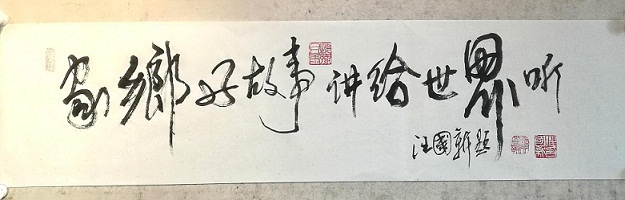 家鄉好故事讲给世界听
汪國新題